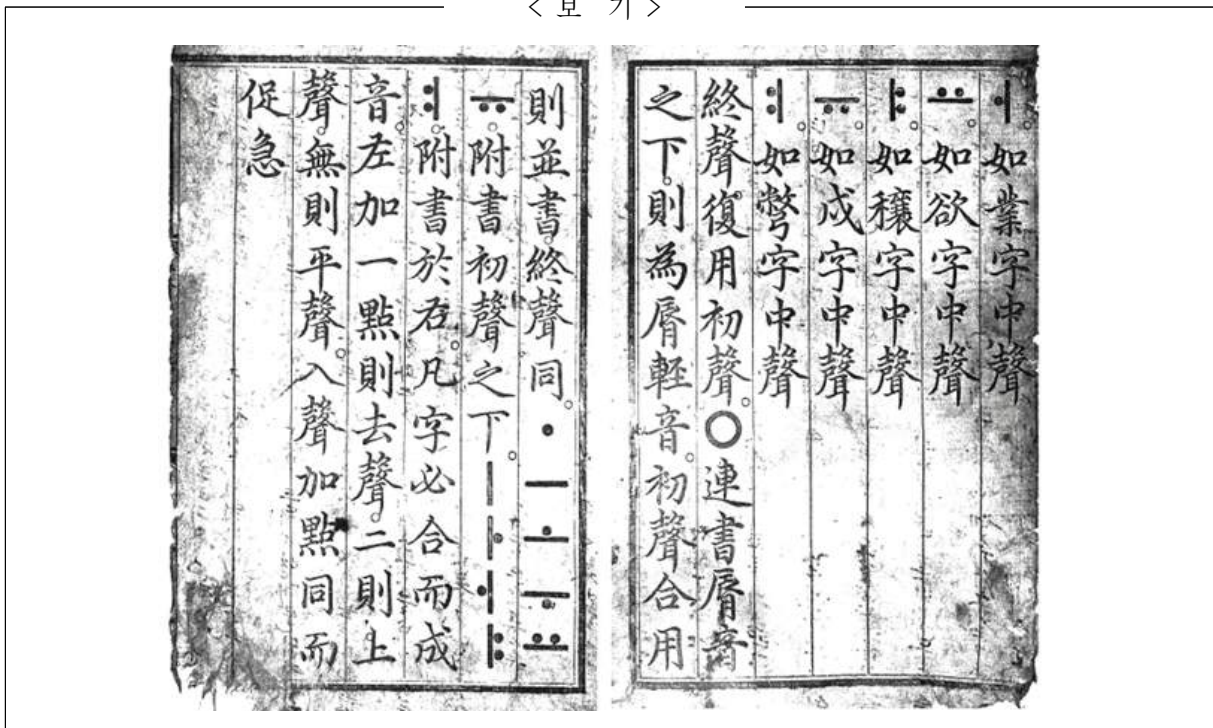 < 보 기 >
ㅓ。如業字中聲
ㅛ。如欲字中聲
ㅑ。如穰字中聲
ㅠ。如戌字中聲
ㅕ。如彆字中聲
終聲復用初聲。○連書脣音
之下。則為脣輕音。初聲合用
則並書。終聲同。ㆍㅡㅗㅜㅛ
ㅠ。附書初聲之下。ㅣㅏㅓㅑ
ㅕ。附書於右。凡字必合而成
音。左加一點則去聲。二則上
聲。無則平聲。入聲加點同而
促急